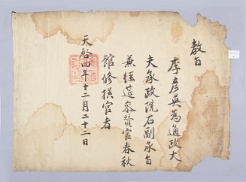 教旨
李彦英爲通政大
夫承政院右副承旨
兼經筵參贊官春秋
館修撰官者
天啓四年十二月二十二日